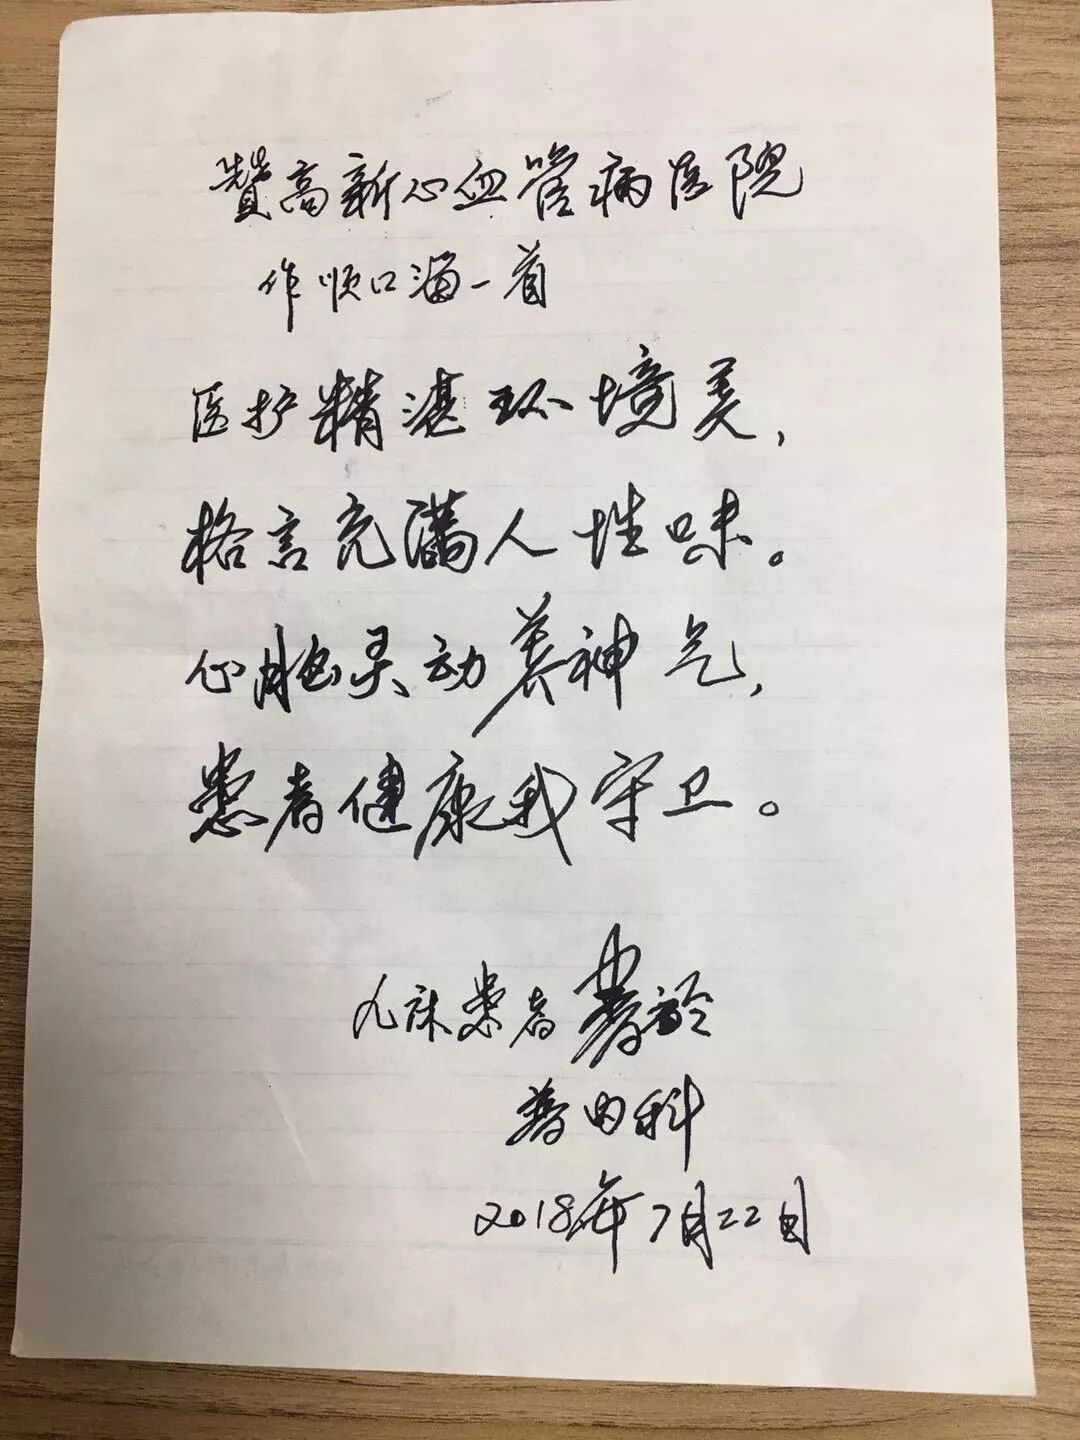 赞高新心血管病医院
作顺口溜一首
医护精湛环境美，
格言充满人性味。
心胸灵动养神气，
患者健康我守卫。
九床患者
普内科
2018年7月22日